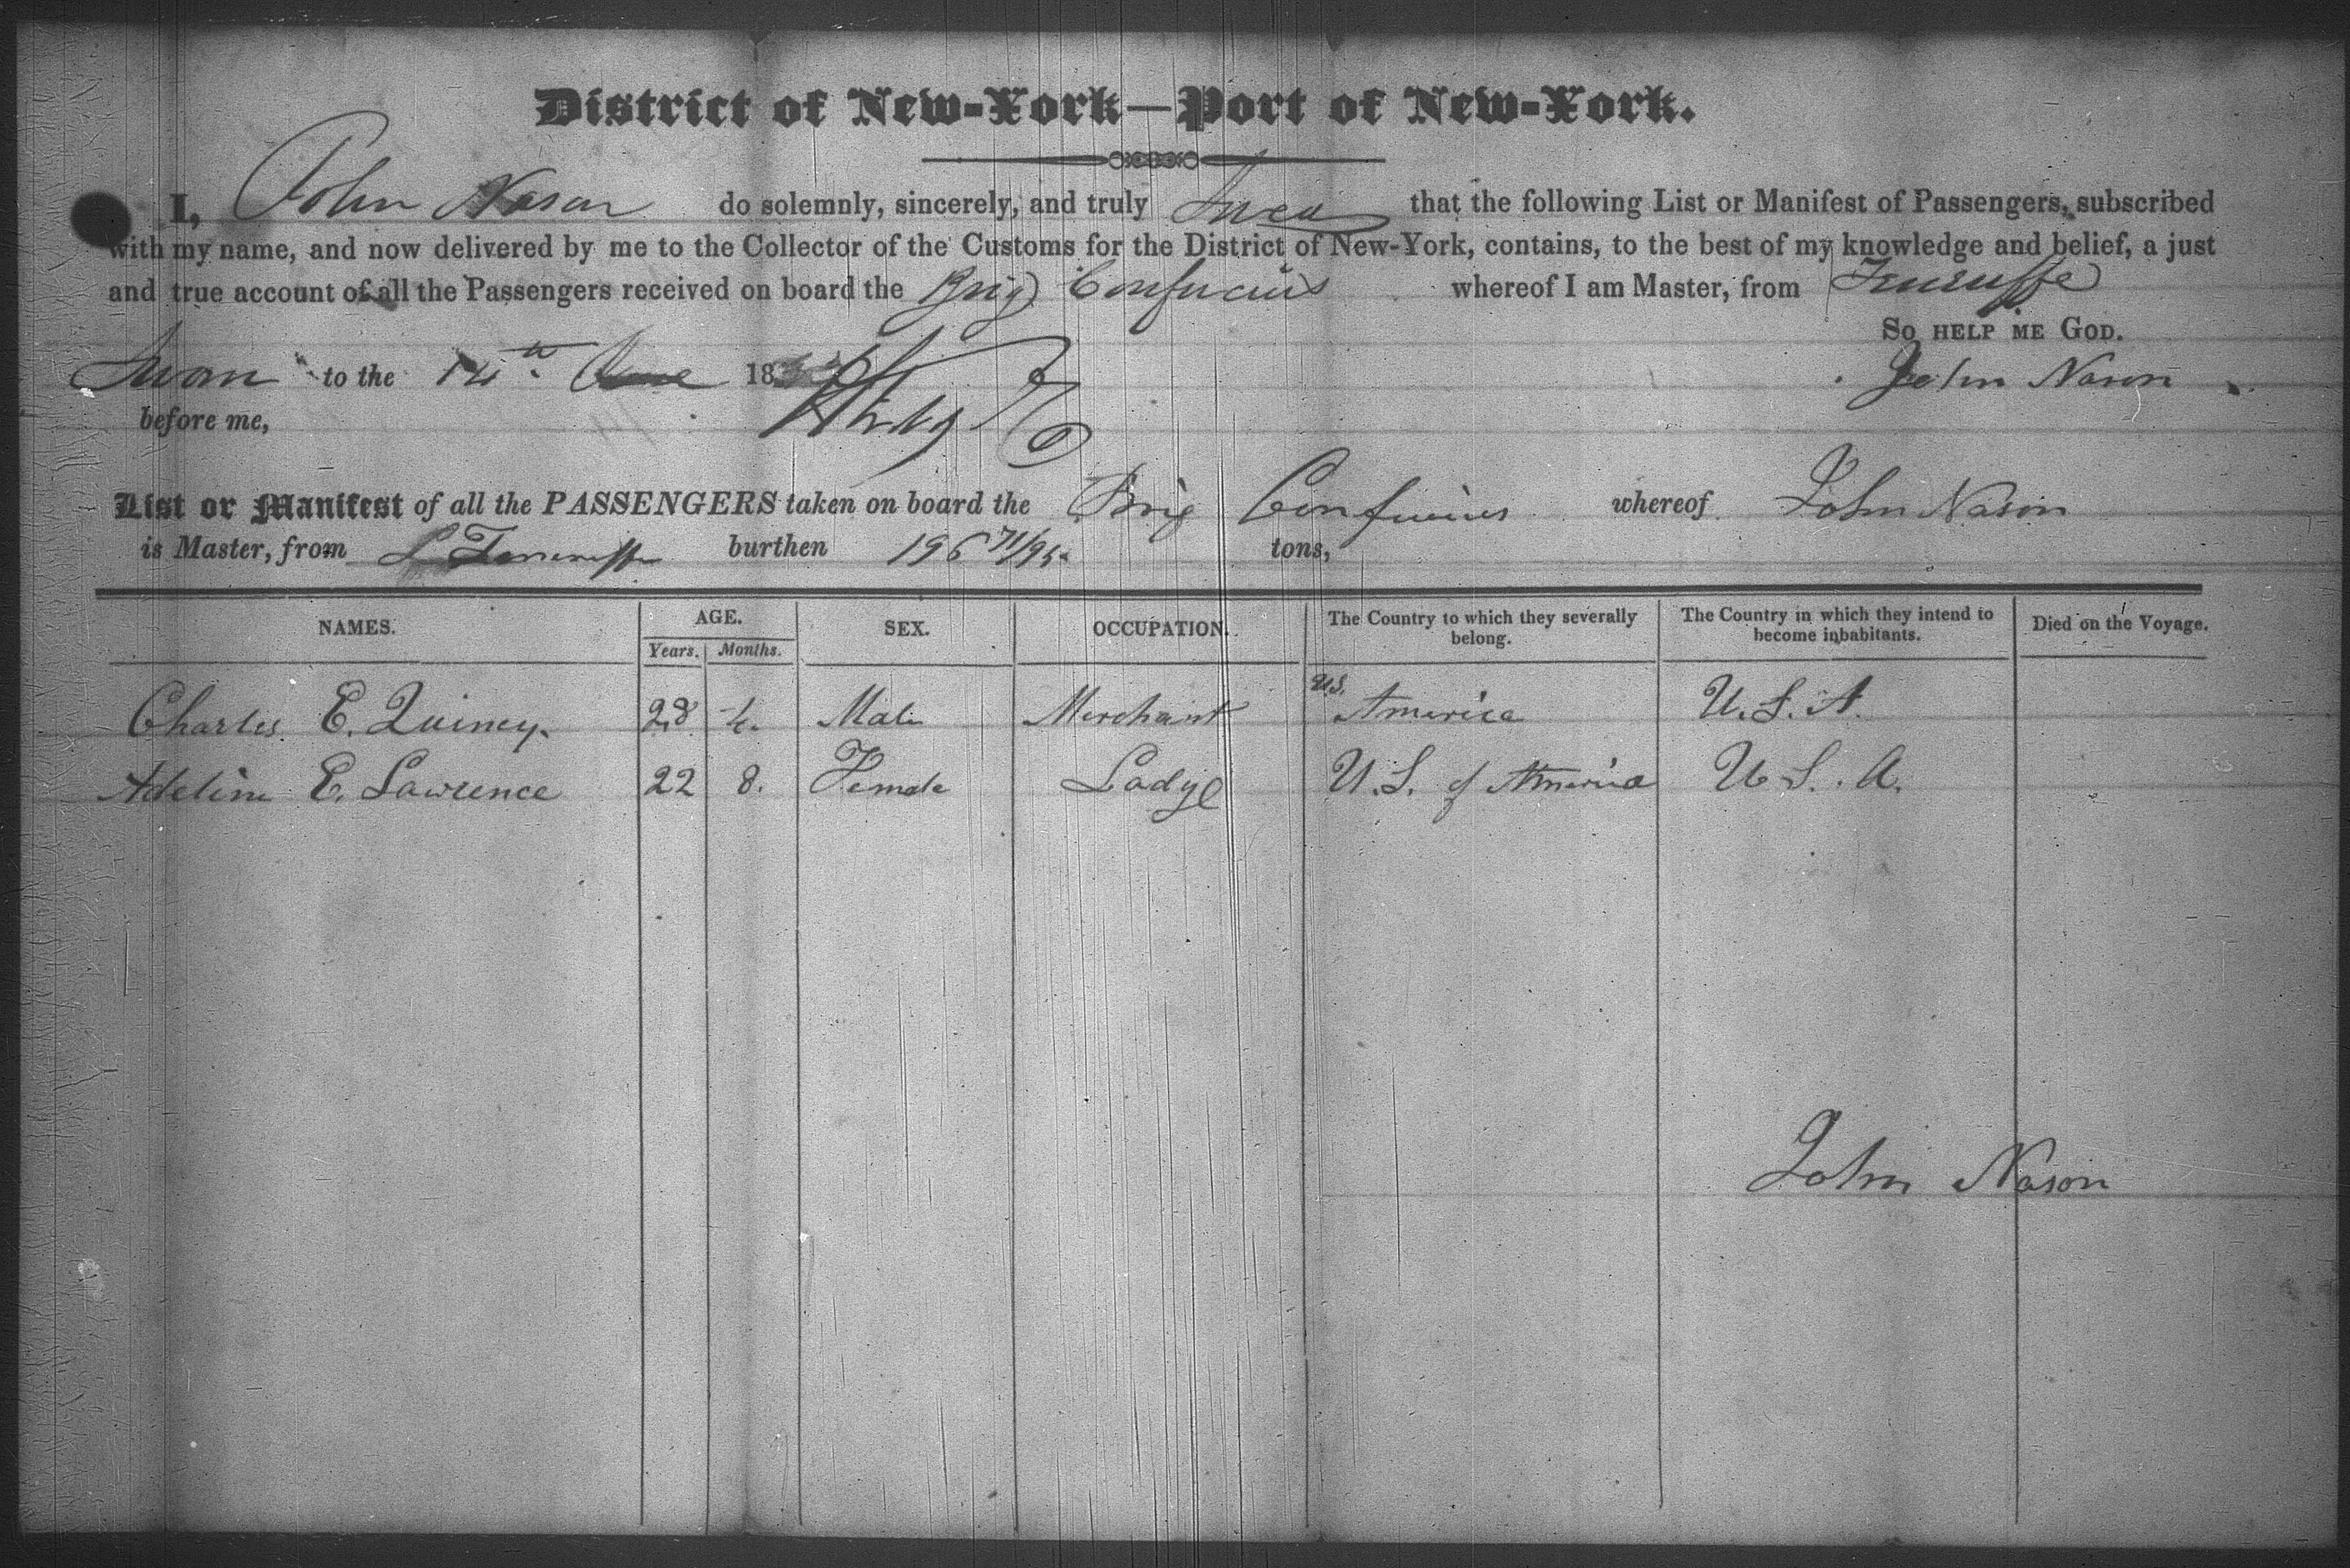 District of New-York—Port of New-York.
I, John Nason do solemnly, sincerely, and truly Swear that the following List or Manifest of Passengers, subscribed
with my name, and now delivered by me to the Collector of the Customs for the District of New-York, contains, to the best of my knowledge and belief, a just
and true account of all the Passengers received on board the Brig Confucius whereof I am Master, from Teneriffe
So help me God.
Sworn to the 14th June 18 John Nason
before me,
List or Manifest of all the PASSENGERS taken on board the Brig Confucius whereof John Nason
is Master, from Teneriffe burthen 196 71/95 tons,
NAMES. AGE. SEX. OCCUPATION. The Country to which they severally belong. The Country in which they intend to become inhabitants. Died on the Voyage.
Years. Months.
Charles E. Quincy. 28 Male Merchant U.S. America U.S.A.
Adeline E. Lawrence 22 8. Female Lady U.S. of America U S. A.
John Nason